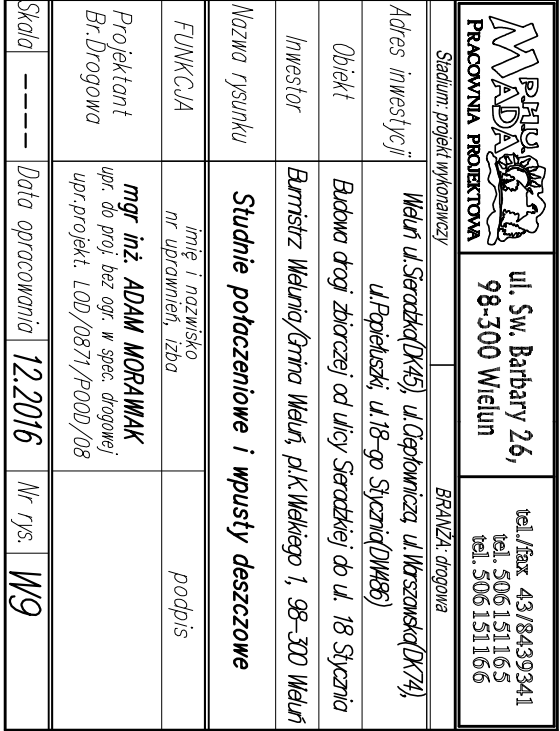 P.H.U.
MADA
PRACOWNIA PROJEKTOWA
ul. Sw. Barbary 26,
98-300 Wielun
tel./fax 43/8439341
tel. 506151165
tel. 506151166
Stadium: projekt wykonawczy
BRANŻA: drogowa
Adres inwestycji
Wieluń ul.Sieradzka(DK45), ul.Ciepłownicza, ul.Warszawska(DK74),
ul.Popiełuszki, ul.18-go Stycznia(DW486)
Obiekt
Budowa drogi zbiorczej od ulicy Sieradzkiej do ul. 18 Stycznia
Inwestor
Burmistrz Wielunia/Gmina Wieluń, pl.K.Wielkiego 1, 98-300 Wieluń
Nazwa rysunku
Studnie połaczeniowe i wpusty deszczowe
FUNKCJA
imię i nazwisko
nr uprawnień, izba
podpis
Projektant
Br.Drogowa
mgr inż. ADAM MORAWIAK
upr. do proj. bez ogr. w spec. drogowej
upr.projekt. LOD/0871/POOD/08
Skala
----
Data opracowania
12.2016
Nr rys.
W9